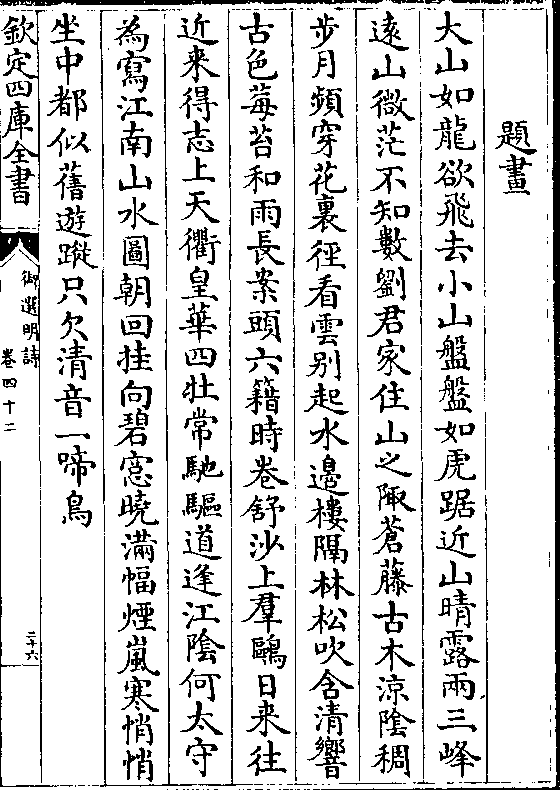 題畫
大山如龍欲飛去小山盤盤如虎踞近山晴露兩三峰
遠山微茫不知數劉君家住山之陬蒼藤古木涼陰稠
步月頻穿花裏徑看雲别起水邉樓隔林松吹含清響
古色莓苔和雨長案頭六籍時卷舒沙上羣鷗日来往
近来得志上天衢皇華四牡常馳驅道逢江陰何太守
為寫江南山水圖朝回挂向碧窓曉滿幅煙嵐寒悄悄
坐中都似舊遊蹤只欠清音一啼鳥
欽定四庫全書
御選明詩
卷四十二
三十六